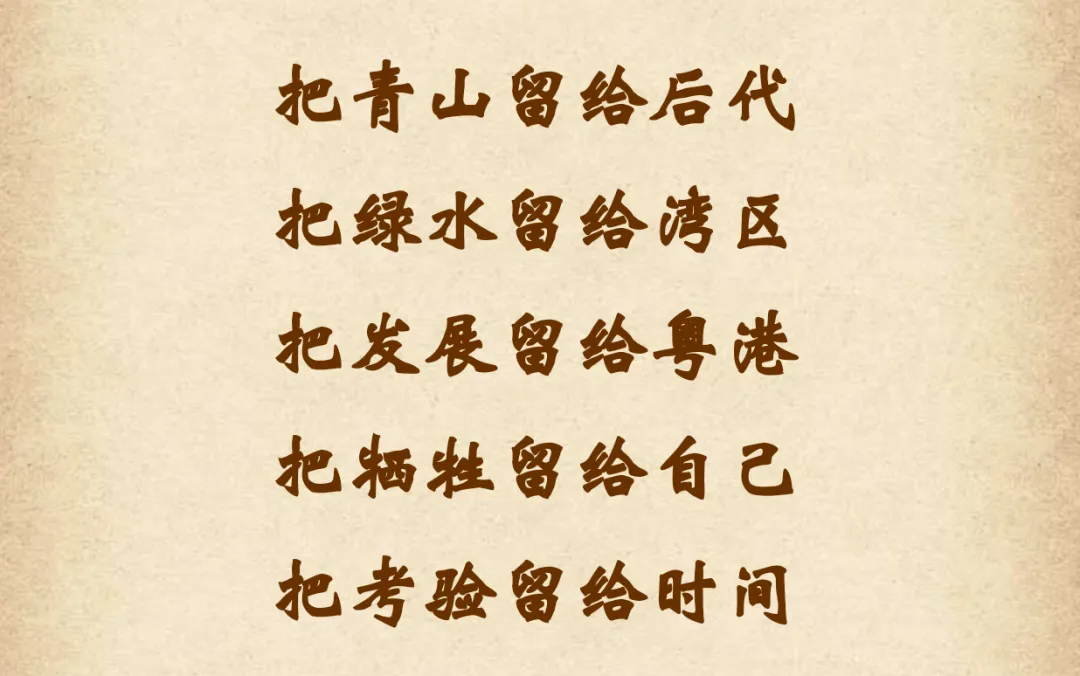 把青山留给后代
把绿水留给湾区
把发展留给粤港
把牺牲留给自己
把考验留给时间